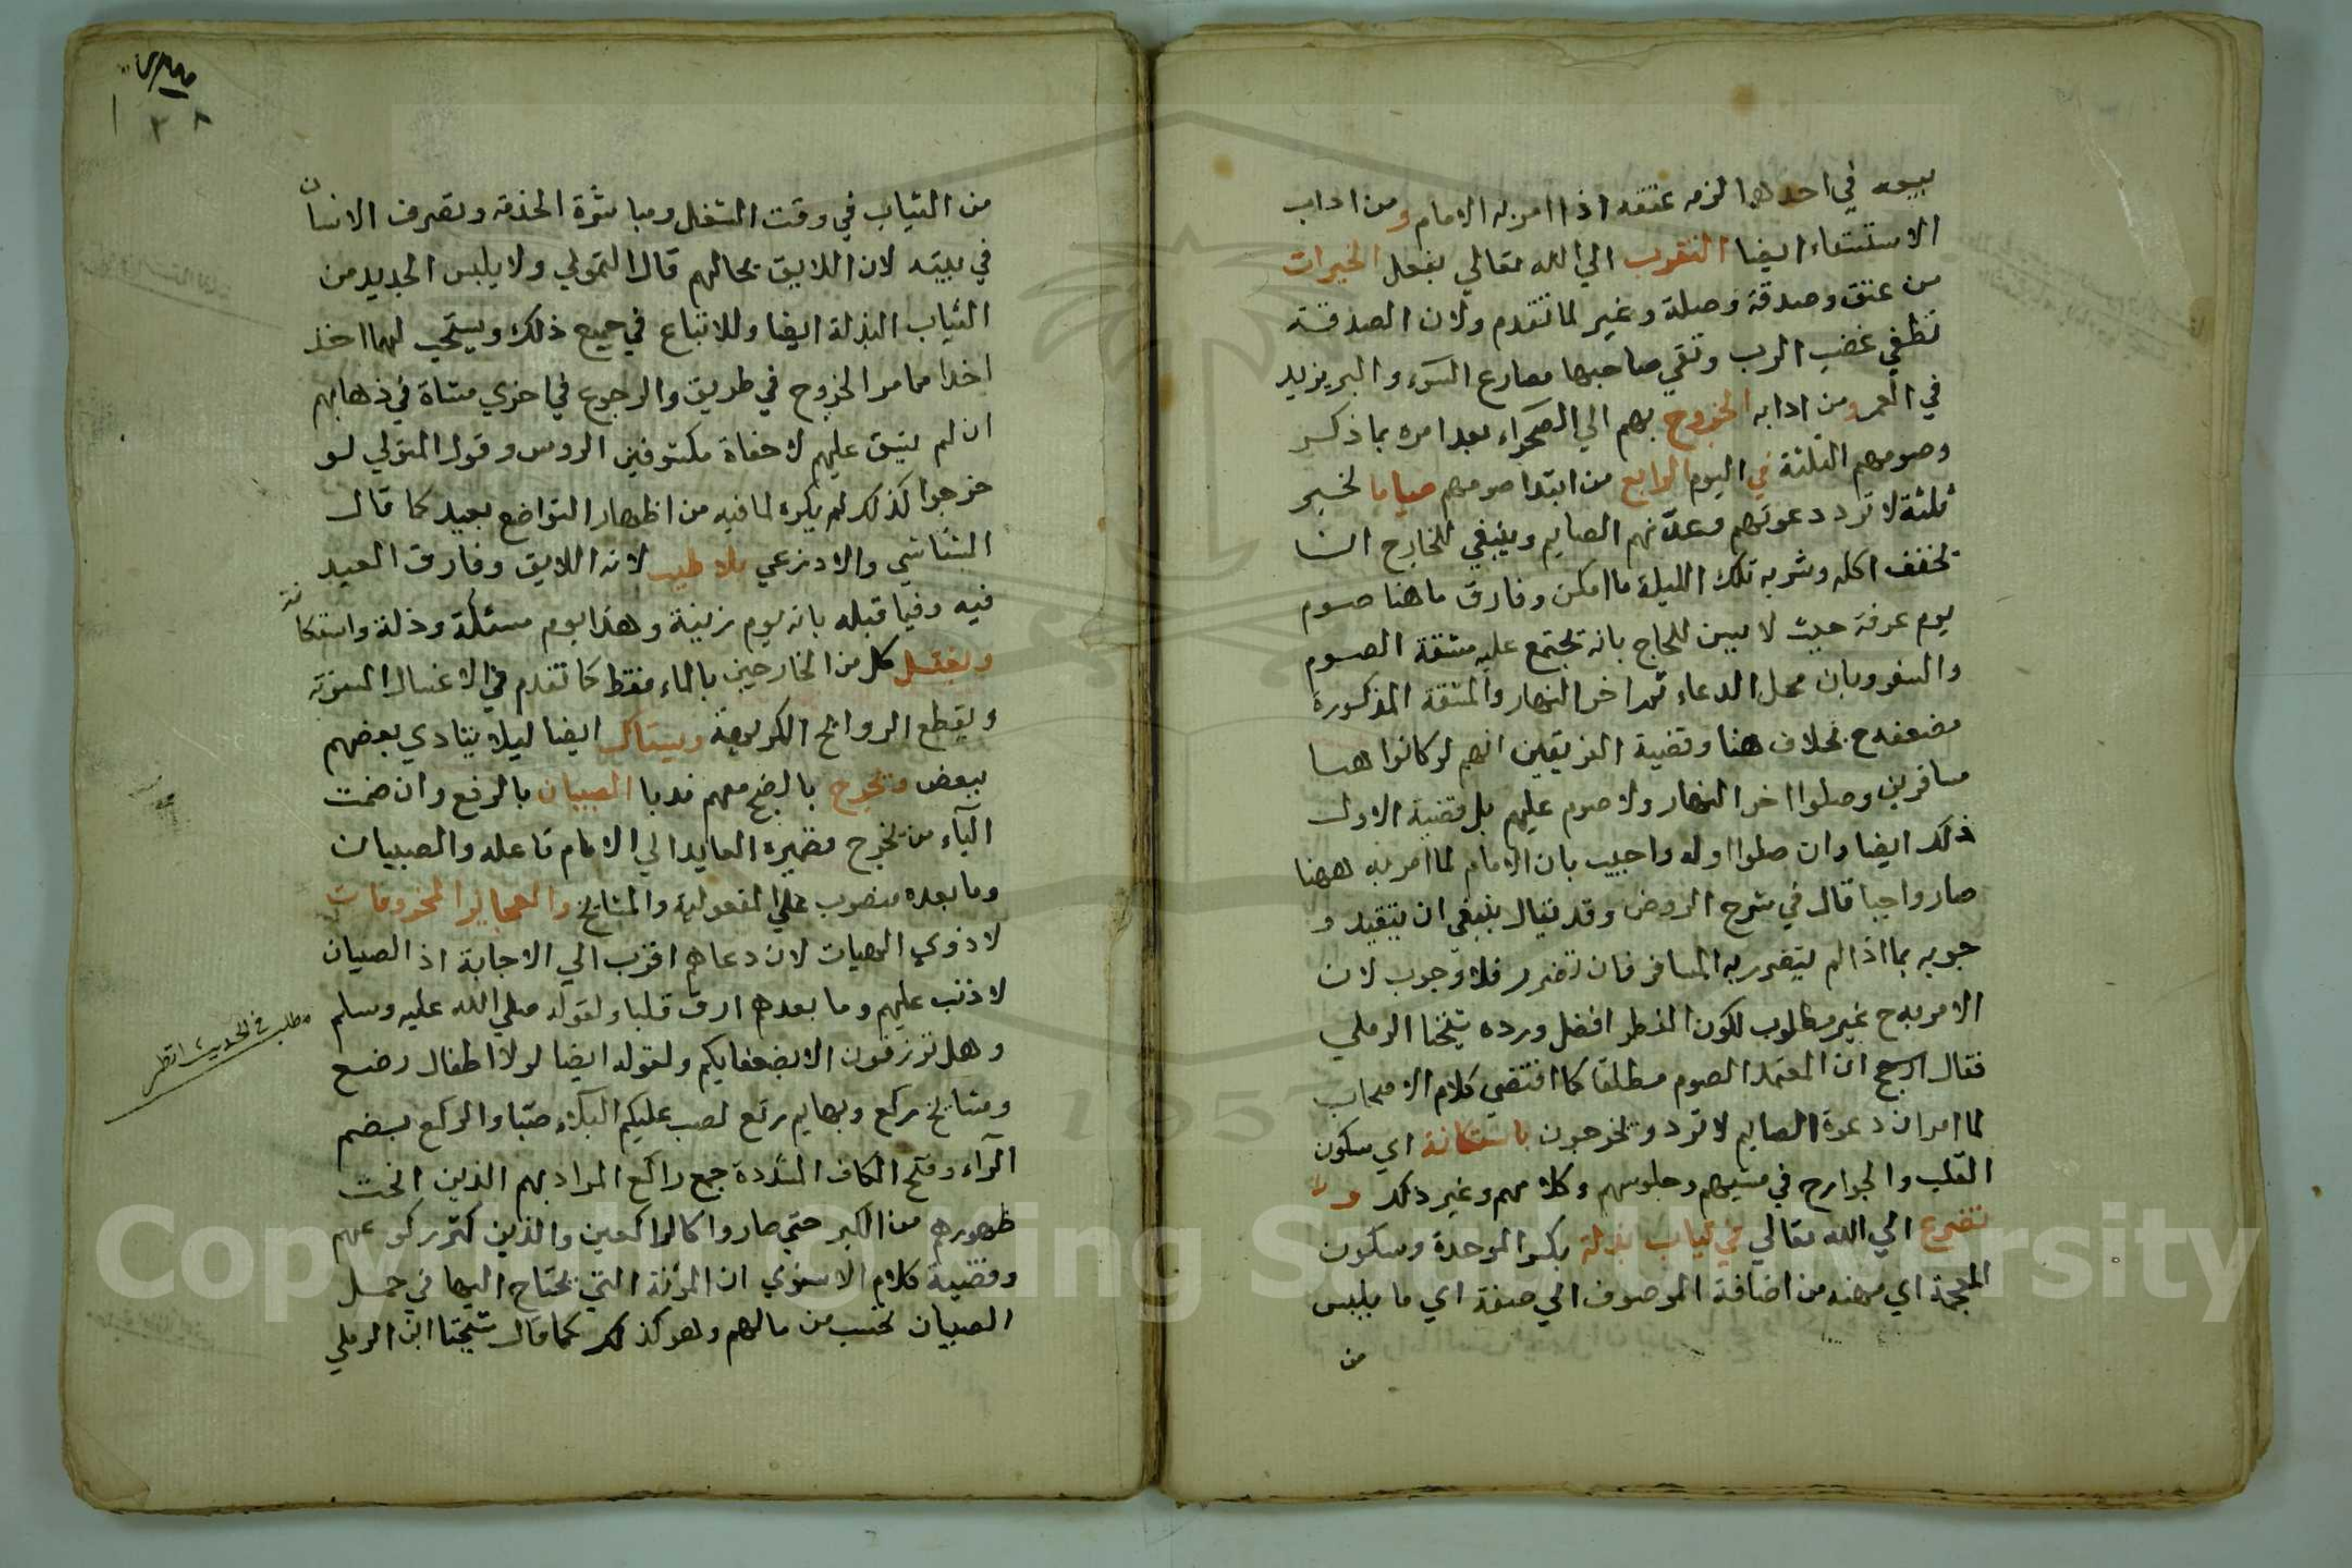 بيعه في احدهما لزمه عتقه اذا امر به الامام ومن اداب
الاستسقاء ايضا التقرب الي الله تعالي بفعل الخيرات
من عتق وصدقة وصلة وغير لما تقدم ولان الصدقة
تطفي غضب الرب وتقي صاحبها مصارع السوء والبر يزيد
في العمر ومن ادابه الخروج بهم الي الصحراء بعد امره بما ذكر
وصومهم الثلثة في اليوم الرابع من ابتدا صومهم صياما لخبر
ثلثة لا ترد دعوتهم وعد منهم الصايم وينبغي للخارج ان
يخفف اكله وشربه تلك الليلة ما امكن وفارق ما هنا صوم
يوم عرفة حيث لا يسن للحاج بانه تجتمع عليه مشقة الصوم
والسفر وبان محل الدعاء ثم اخر النهار والمشقة المذكورة
مضعفه ح بخلاف هنا وقضية الفريقين انهم لو كانوا هنا
مسافرين وصلوا اخر النهار ولا صوم عليهم بل قضية الاول
ذلك ايضا وان صلوا اوله واجيب بان الامام لما امر به ههنا
صار واجبا قال في شرح الروض وقد يقال ينبغي ان يتقيد و
جوبه بما اذا لم يتضرر به المسافر فان تضرر فلا وجوب لان
الامر به ح غير مطلوب لكون الفطر افضل ورده شيخنا الرملي
فقال ان المعتمد الصوم مطلقا كما اقتضي كلام الاصحاب
لما مر ان دعوة الصايم لا ترد ويخرجون باستكانة اي سكون
القلب والجوارح في مشيهم وجلوسهم وكلامهم وغير ذلك و
تضرع الي الله تعالي في ثياب بذلة بكسر الموحدة وسكون
المعجمة اي مهنه من اضافة الموصوف الي صفة اي ما يلبس
من
٣٨
من الثياب في وقت الشغل ومباشرة الخدمة وتصرف الانسان
في بيته لان اللايق بحالهم قال القمولي ولا يلبس الجديد من
الثياب البذلة ايضا وللاتباع في جميع ذلك ويستحب لهما اخذ
اخذا مما مر الخروج في طريق والرجوع في اخري مشاة في ذهابهم
ان لم يشق عليهم لا حفاة مكشوفين الروس وقول المتولي لو
خرجوا كذلك لم يكره لما فيه من اظهار التواضع بعيد كما قال
الشاشي والاذرعي بلا طيب لانه اللايق وفارق العيد
فيه وفيما قبله بانه يوم زينة وهذا يوم مسئلة وذلة واستكانة
ويغتسل كل من الخارجين بالماء فقط كما تقدم في الاغسال المسنونة
ويقطع الروائح الكريهة ويستاك ايضا ليلا يتادي بعضهم
ببعض ويخرج بالضم معهم ندبا الصبيان بالرفع وان ضمت
الياء من يخرج فضميره العايد الي الامام فاعله والصبيان
وما بعده منصوب علي المفعولية والمشايخ والعجايز المخروفات
لا ذوي الهيات لان دعاهم اقرب الي الاجابة اذ الصبيان
لا ذنب عليهم وما بعدهم ارق قلبا ولقوله صلي الله عليه وسلم
وهل ترزقون الا بضعفايكم ولقوله ايضا لولا اطفال رضع
ومشايخ ركع وبهايم رتع لصب عليكم البلاء صبا والركع بضم
الراء وفتح الكاف المشددة جمع راكع المراد بهم الذين انحنت
ظهورهم من الكبر حتي صاروا كالراكعين والذين كثر ركوعهم
وقضية كلام الاسنوي ان المؤنة التي يحتاج اليها في حمل
الصبيان تحسب من مالهم وهو كذلك كما قال شيخنا ابن الرملي
مطلب في الحديث انظر
Copyright © King Saud University
1957